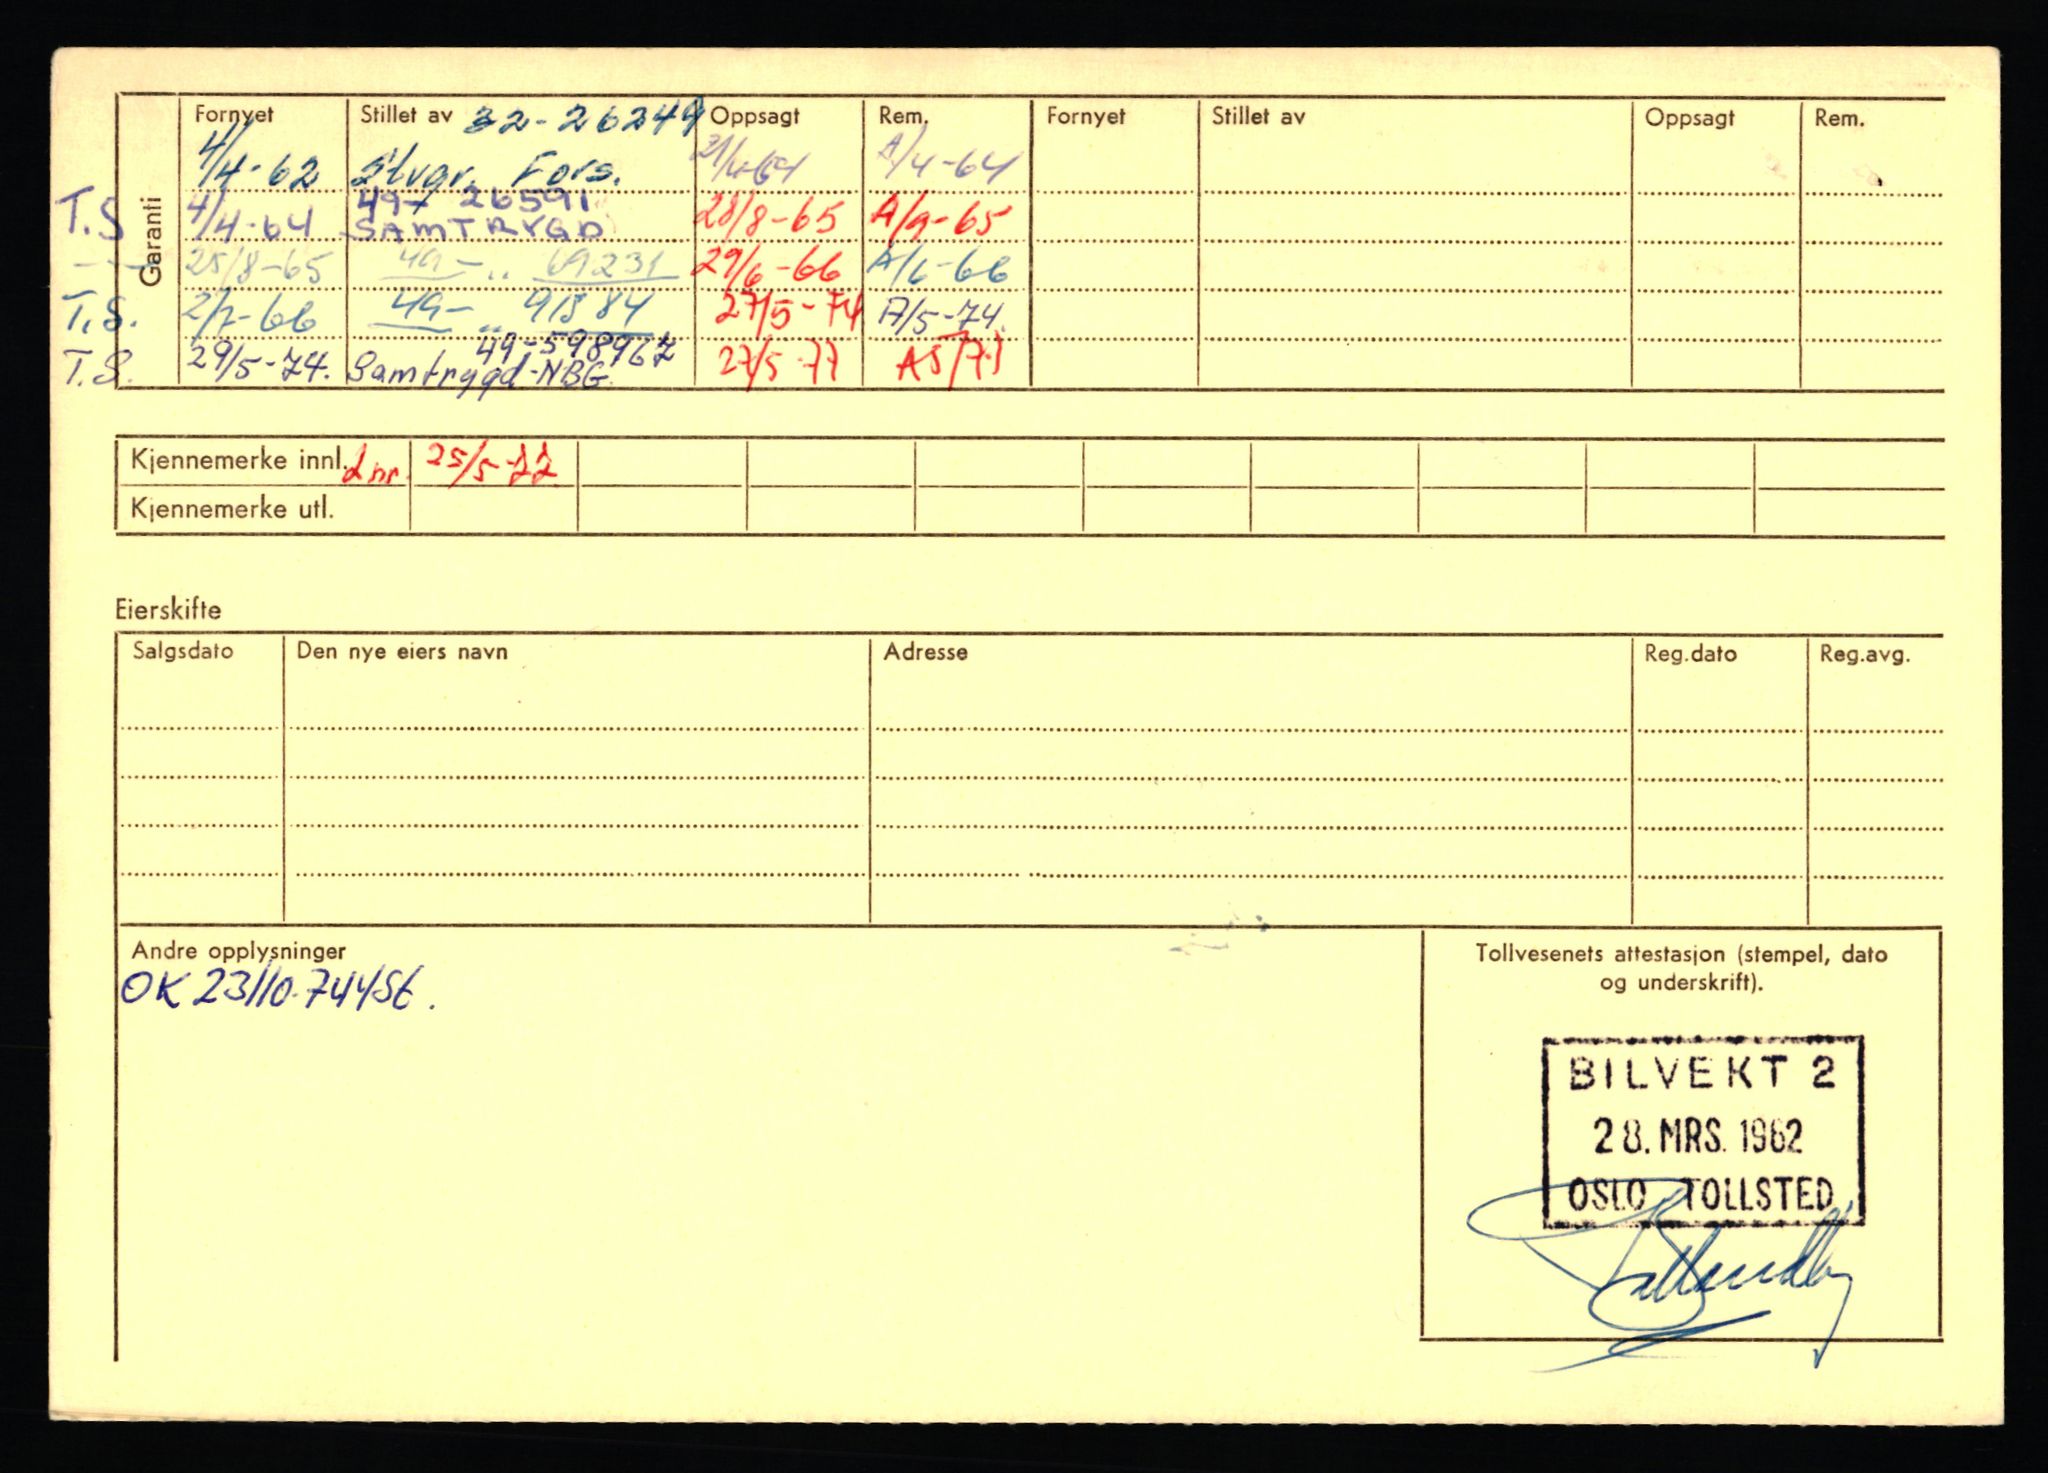 Garanti
Fornyet Stillet av 32-26249 Oppsagt Rem. Fornyet Stillet av Oppsagt Rem.
4/4-62 Stvgr. Fors. 21/4-64 A/4-64
49- 26591
T.S 4/4-64 SAMTRYGD 28/8-65 A/9-65
25/8-65 49- " 69231 29/6-66 A/6-66
T.S. 2/7-66 49- " 91884 27/5-74 A/5-74.
49-598967
T.S. 29/5-74. Samtrygd-NBG 27/5-77 A5/77
Kjennemerke innl. 2nr. 25/5-77
Kjennemerke utl.
Eierskifte
Salgsdato Den nye eiers navn Adresse Reg.dato Reg.avg.
Andre opplysninger
OK 23/10-74
Tollvesenets attestasjon (stempel, dato
og underskrift).
BILVEKT 2
28. MRS. 1962
OSLO TOLLSTED